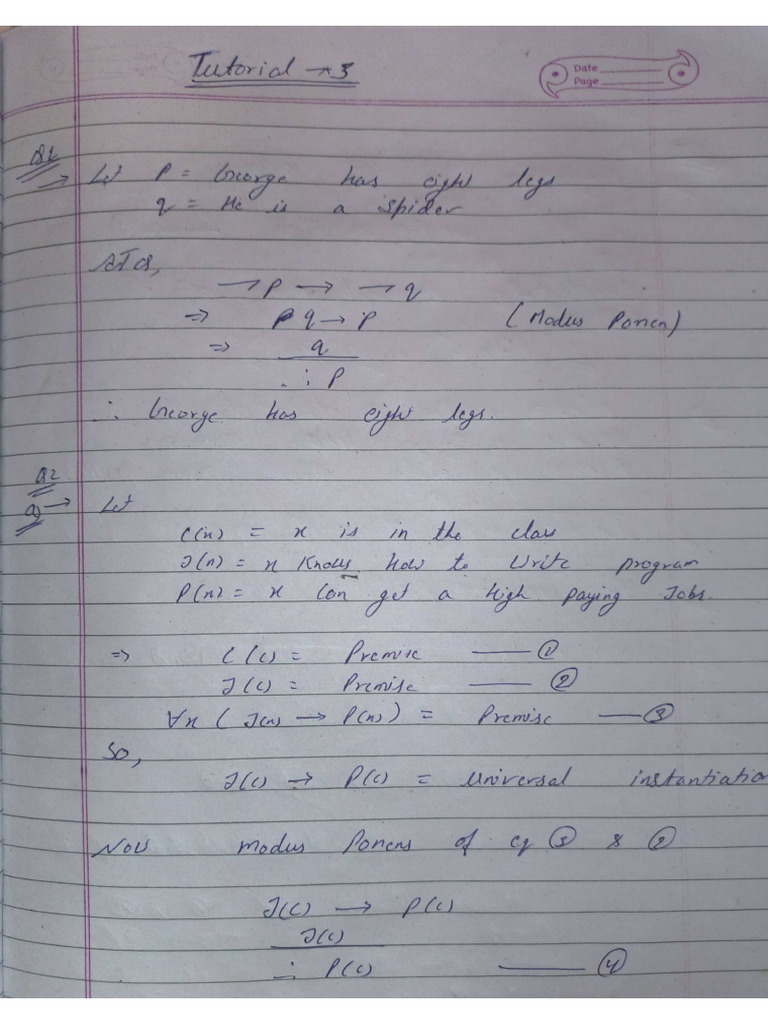 Tutorial → 3
Date
Page
Q1
→ Let P = George has eight legs
q = He is a spider
ATQ,
¬P → ¬q
⇒ q → P (Modus Ponen)
⇒ q
∴ P
∴ George has eight legs.
Q2
a) → Let
C(x) = x is in the class
J(x) = x knows how to write program
P(x) = x can get a high paying Jobs.
⇒ C(c) = Premise —— ①
J(c) = Premise —— ②
∀x ( J(x) → P(x) ) = Premise —— ③
So,
J(c) → P(c) = universal instantiation
Now modus Ponens of eq ③ & ②
J(c) → P(c)
J(c)
∴ P(c) —— ④